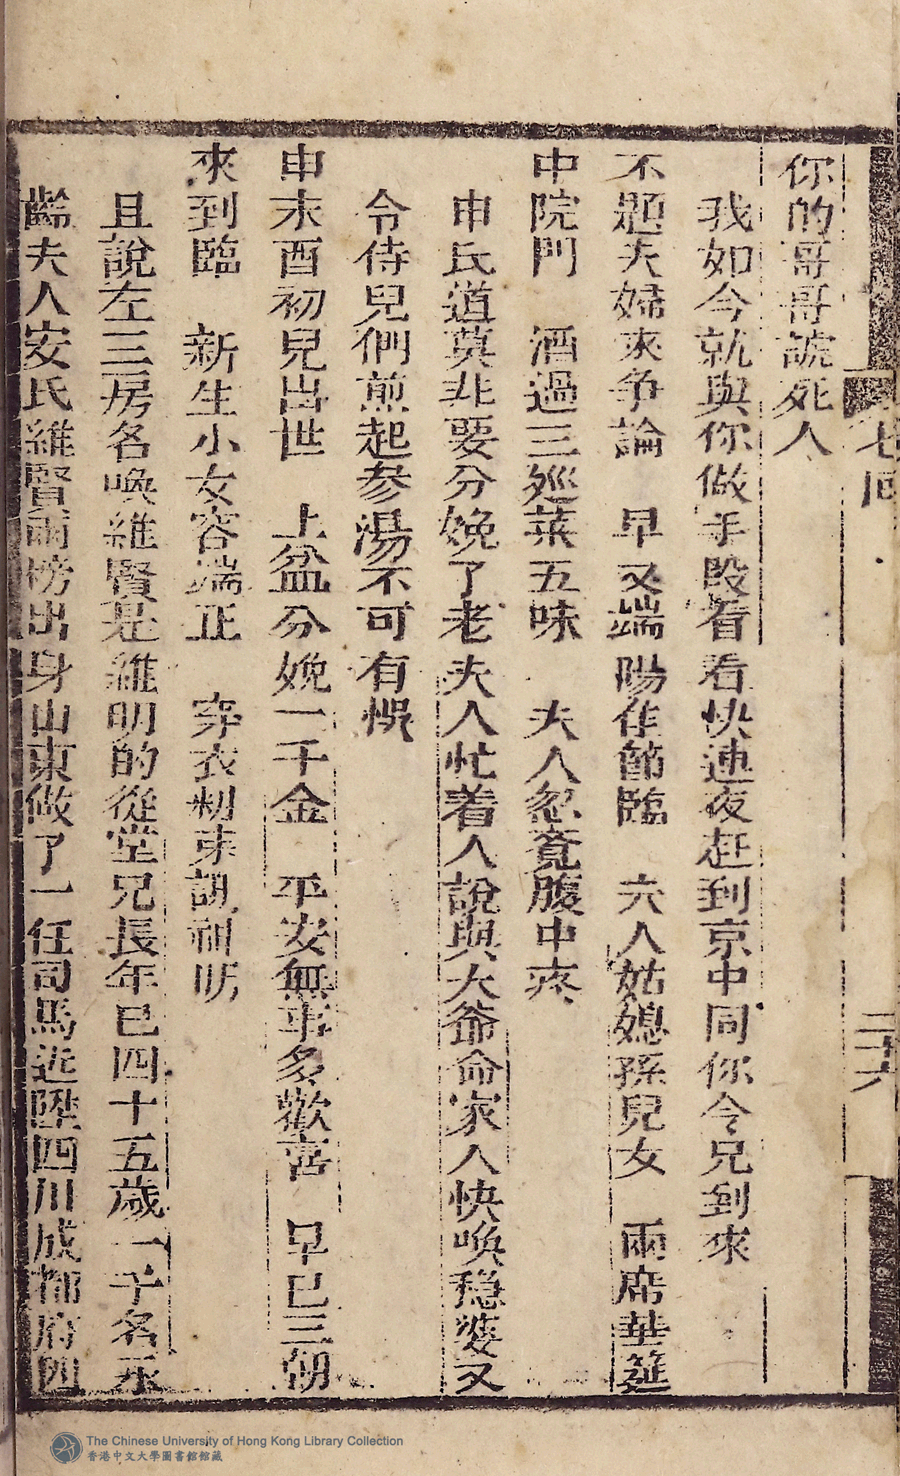 七回
二十六
你的哥哥諕死人
我如今就與你做手段看看快連夜赶到京中同你令兄到來
不題夫婦來争論　早又端陽佳節臨　六人姑媳孫兒女　兩席華筵
中院門　酒過三廵菜五味　夫人忽覔腹中疼
申氏道莫非要分娩了老夫人忙着人說與大爺命家人快喚穏婆又
令侍兒們煎起参湯不可有悞
申末酉初兒出世　上盆分娩一千金　平安無事多歡喜　早已三朝
來到臨　新生小女容端正　穿衣剏束謝祖
且說左三房名喚維賢是維明的從堂兄長年已四十五歲一子名永
齡夫人安氏維賢兩榜出身山東做了一任司馬近陞四川成都府四
The Chinese University of Hong Kong Library Collection
香港中文大學圖書館館藏